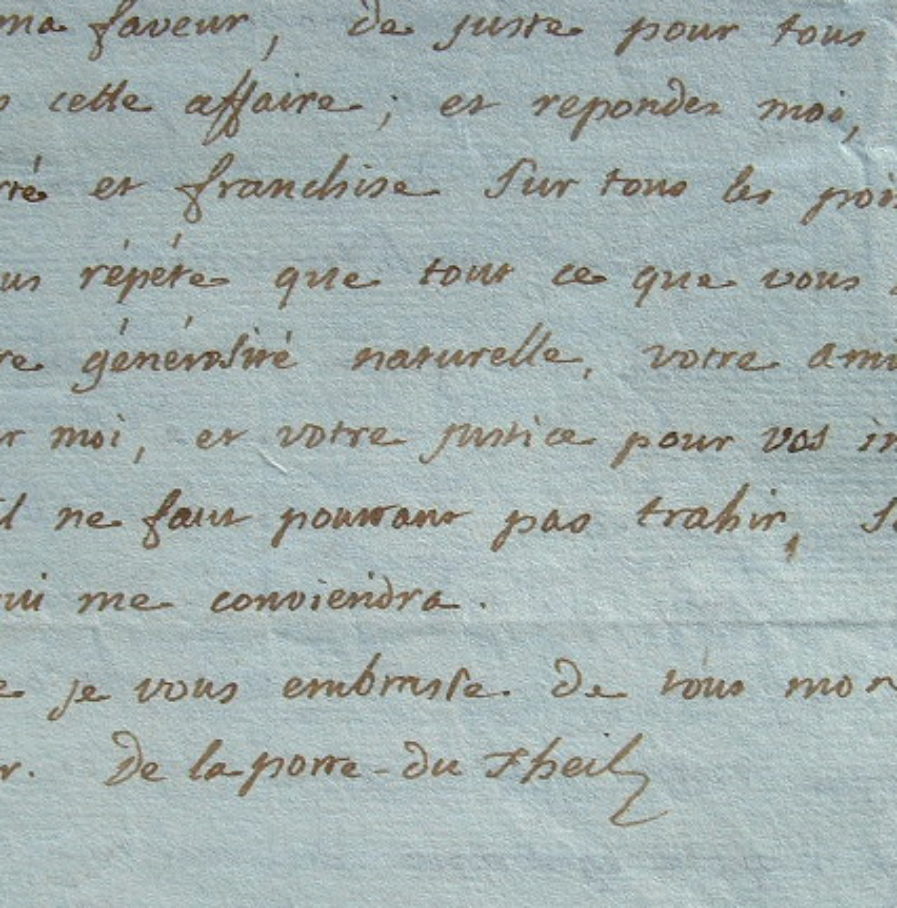 ma faveur, de juste pour tous
s cette affaire; et repondez moi,
rté et franchise Sur tous les poin
us répéte que tout ce que vous
re générosité naturelle, votre ami
r moi, et votre justice pour vos in
il ne faut pourtant pas trahir, S
ui me conviendra.
e je vous embrasse de tous mon
r. De la porte-du Theil